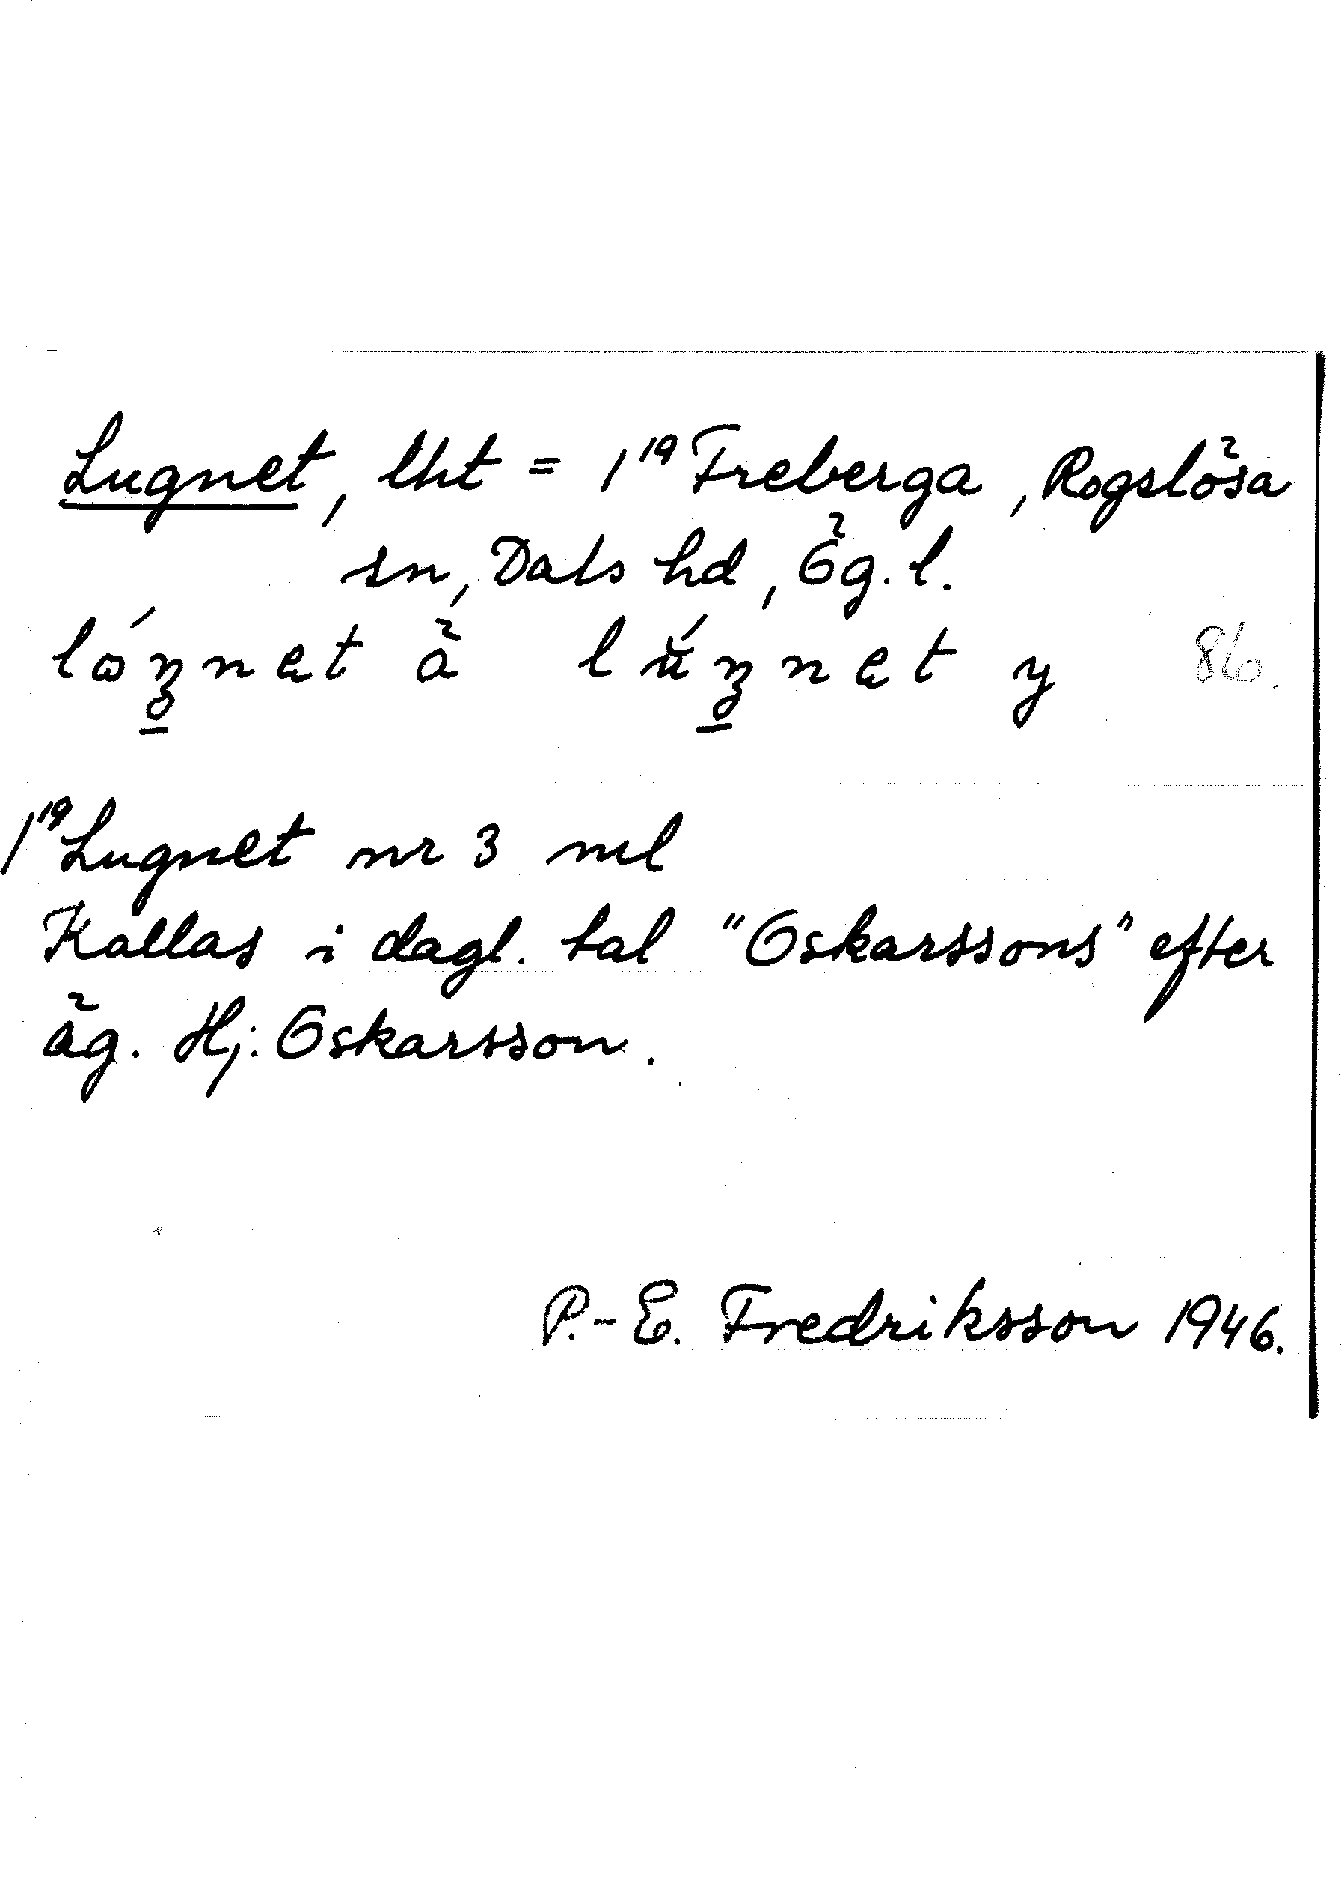 Lugnet, lht = 1¹⁹ Freberga, Rogslösa
sn, Dals hd, Ög.l.
lɷ́ᶎnet ä lúᶎnet y 86.
1¹⁹ Lugnet nr 3 ml
Kallas i dagl. tal "Oskarssons" efter
äg. Hj. Oskarsson.
P.-E. Fredriksson 1946.